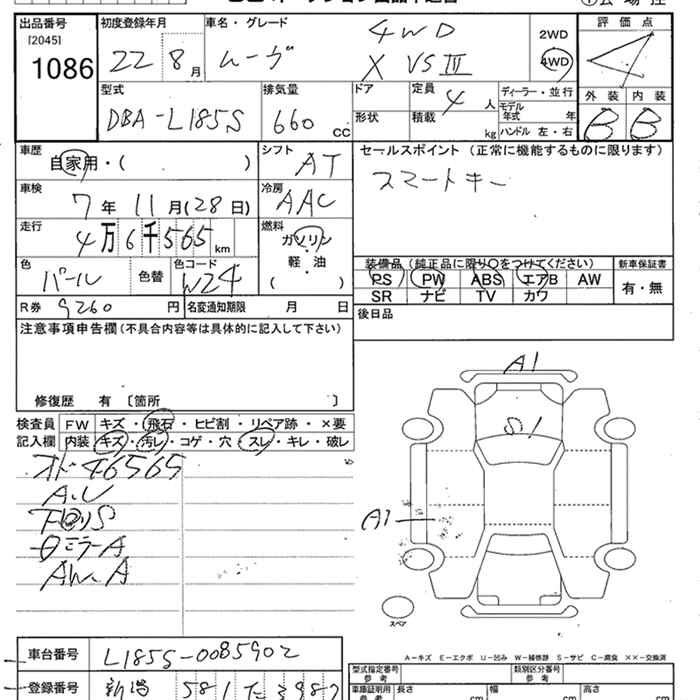 出品番号 初度登録年月 車名・グレード 評価点
[2045] 1086 22 8月 ムーヴ 4WD X VS III 2WD 4WD 4
型式 排気量 ドア 定員 ディーラー・並行 外装 内装
DBA-L185S 660cc 形状 4人 積載 kg モデル年式 年 ハンドル 左・右 B B
車歴 自家用・( ) シフト AT セールスポイント (正常に機能するものに限ります)
車検 7年11月(28日) 冷房 AAC スマートキー
走行 4万6千565km 燃料 ガソリン 軽・油 ( )
色 パール 色替 色コード W24
装備品(純正品に限り○をつけてください) 新車保証書
PS PW ABS エアB AW 有・無
SR ナビ TV カワ
R券 9260円 名変通知期限 月 日 後日品
注意事項申告欄(不具合内容等は具体的に記入して下さい)
修復歴 有 〔箇所 〕
検査員 FW キズ・飛石・ヒビ割・リペア跡・×要
記入欄 内装 キズ・汚レ・コゲ・穴・スレ・キレ・破レ
オドー46565
A.U
下回りS
ミラーA
AW.A
A1
S1
A1
スペア
A-キズ E-エクボ U-凹み W-補修跡 S-サビ C-腐食 XX-交換済
車台番号 L185S-0085902
型式指定番号 参考 類別区分番号 参考
登録番号 新潟 581
車庫証明用 参考 長さ cm 幅 cm 高さ cm